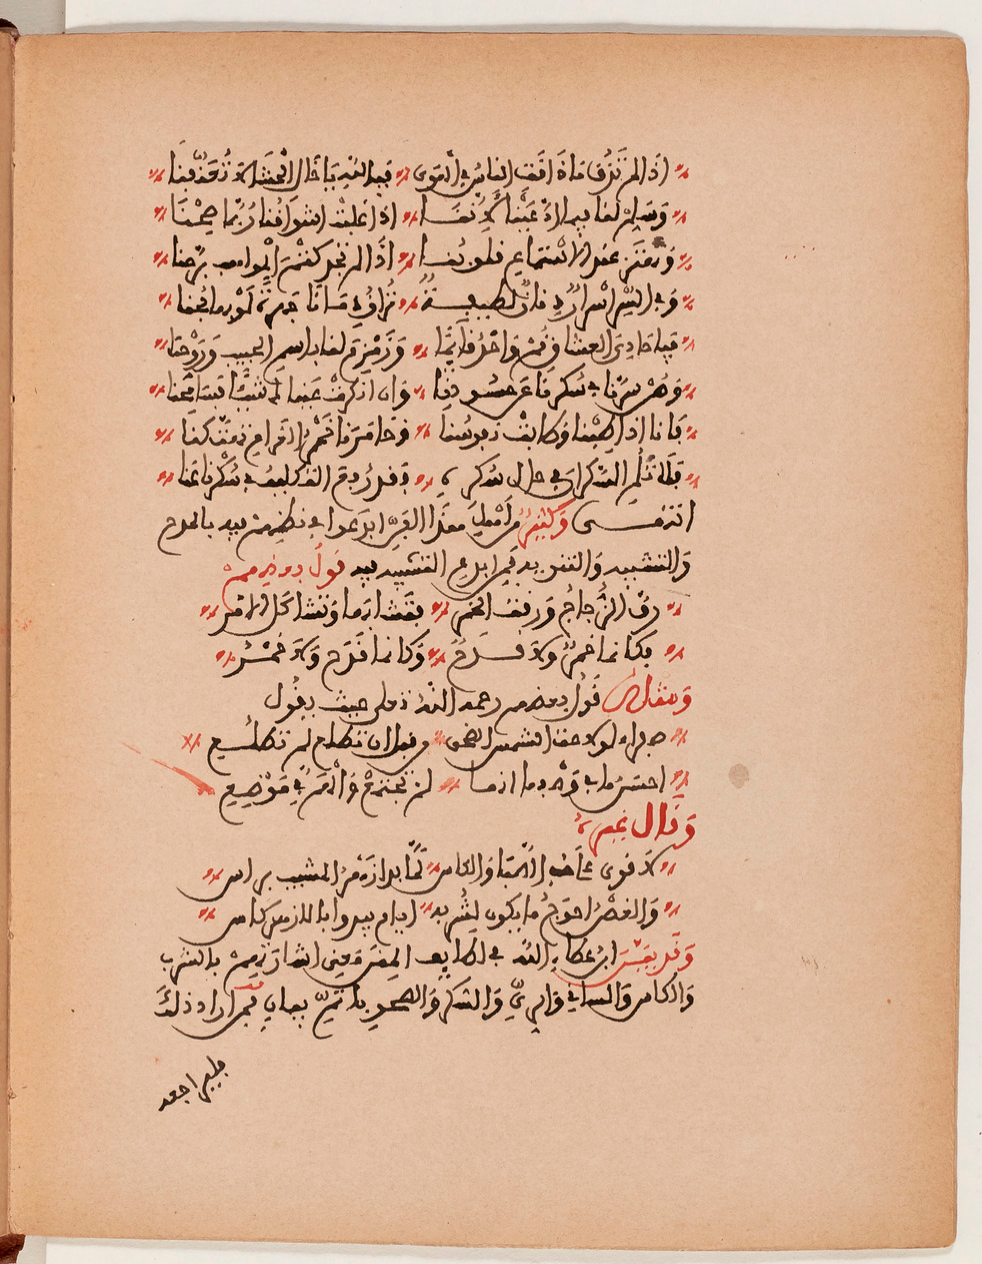 اذا لم تذق ماذاقت الناس في الهوى فبالله يا خال الحشا لا تعنفنا
وسلم لنا فيما ادعينا لأننا اذا غلبت اشواقنا ربما صحنا
وتهتز عند الاستماع قلوبنا اذا لم نجد كتم المواجيد برّحنا
وفي السر اسرار دقاق لطيفة تراق دمانا جهرة لو بها بحنا
فيا حادي العشاق قم واحد قائما وزمزم لنا باسم الحبيب وروحنا
وصن سرنا في سكرنا عن حسودنا وان انكرت عيناك شيئا فسامحنا
فانا اذا طبنا وطابت نفوسنا وخامرنا خمر الغرام تهتكنا
فلا تلم السكران في حال سكره فقد رفع التكليف في سكرنا عنا
انتهى وكثير من اهل هذا الفن ابدعوا في نظمهم فيه بالمدح
والتشبيه والتنويه فمن ابدع التشبيه فيه قول بعضهم
رق الزجاج ورقت الخمر فتشابها وتشاكل الامر
فكانما خمر ولا قدح وكانما قدح ولا خمر
ومثله قول بعضهم رحمه الله تعلى حيث يقول
صفراء لولاحت الشمس الضحى وقبل ان تطلع لم تطلع
احسن ما في وصفها انها لن تجتمع والهم في موضع
وقال غيره
والغصن احوج ما يكون لشربه ايام يبدوا بالازهر كاس
وقد بسّر ابن عطاء الله في لطايف المنن معنى اشارتهم بالشرب
والكاس والساقي والري والسكر والصحو باتم بيان فمن اراد ذلك
فليراجعه